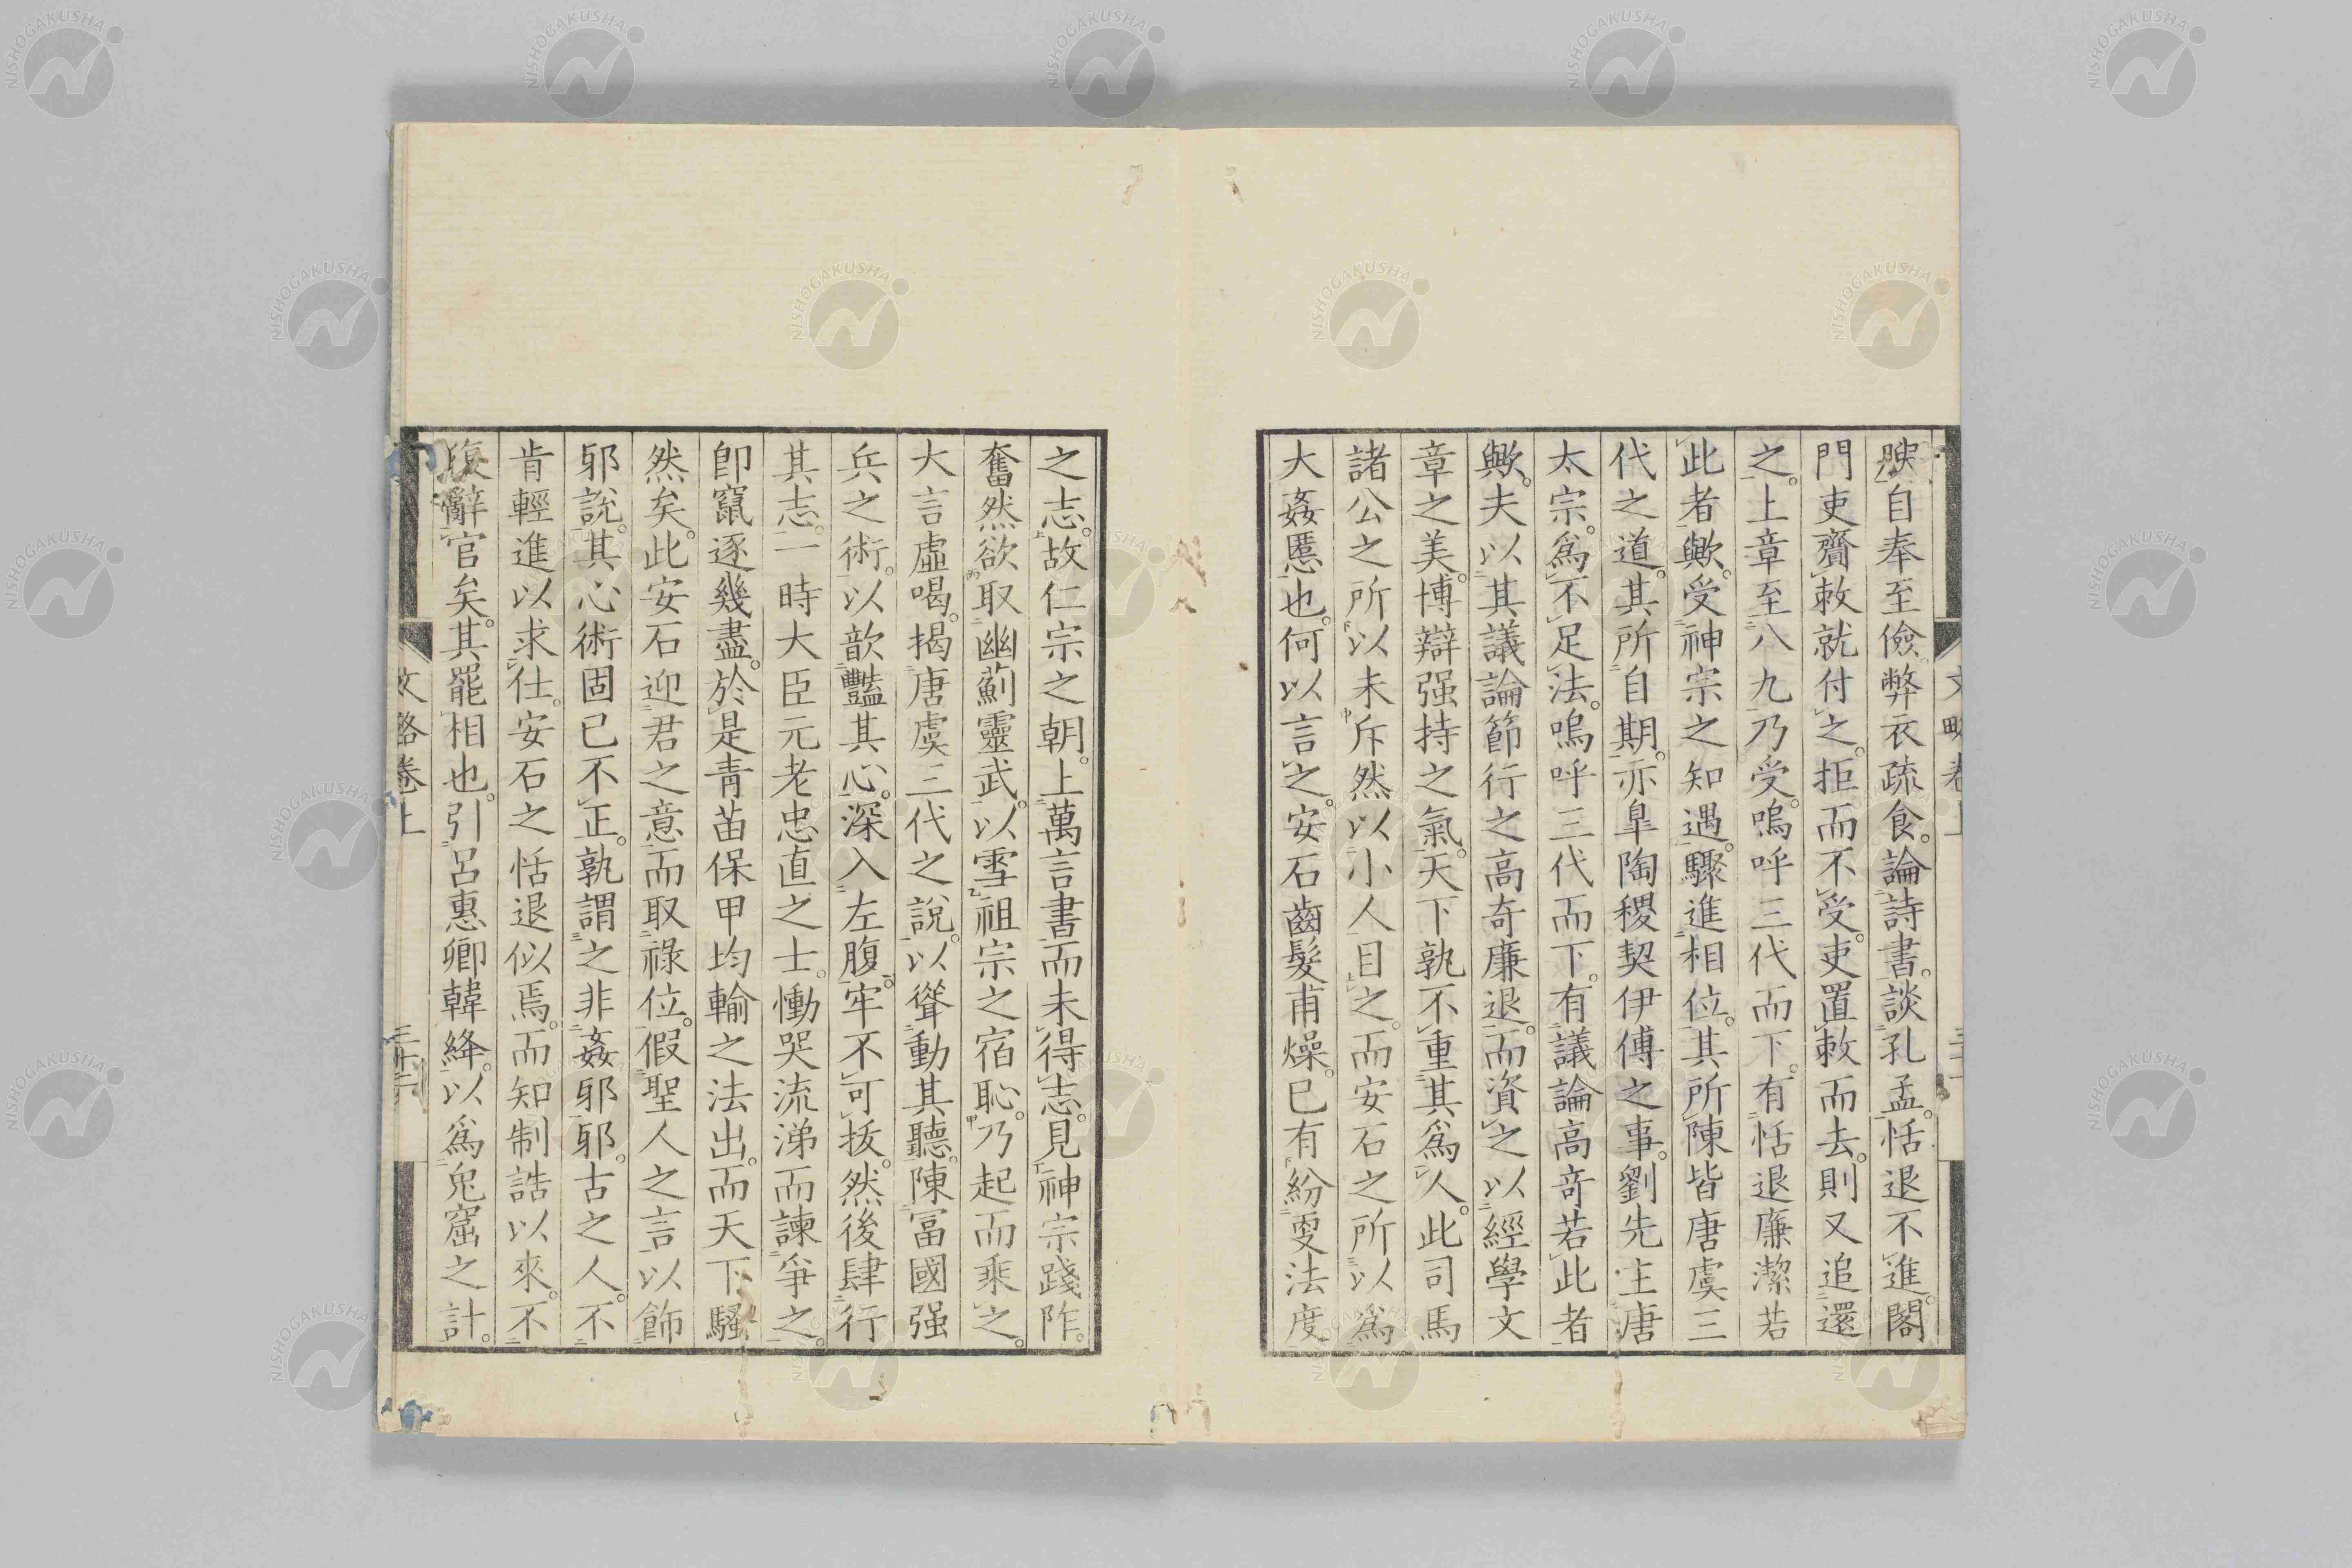 腴自奉至儉弊衣疏食。論詩書。談孔孟。恬退不進。閣
門吏齎敕就付之。拒而不受。吏置敕而去。則又追還
之。上章至八九乃受。嗚呼三代而下。有恬退廉潔若
此者歟。受神宗之知遇。驟進相位。其所陳皆唐虞三
代之道。其所自期。亦皐陶稷契伊傅之事。劉先主唐
太宗。爲不足法。嗚呼三代而下。有議論高奇若此者
歟。夫以其議論節行之高奇廉退。而資之以經學文
章之美。博辯强持之氣。天下孰不重其爲人。此司馬
諸公之所以未斥然以小人目之。而安石之所以爲
大姦慝也。何以言之。安石齒髮甫燥。已有紛更法度
之志。故仁宗之朝。上萬言書而未得志。見神宗踐阼。
奮然欲取幽薊靈武。以雪祖宗之宿恥。乃起而乘之。
大言虛喝。揭唐虞三代之說。以聳動其聽。陳富國强
兵之術。以歆豔其心。深入左腹。牢不可拔。然後肆行
其志。一時大臣元老忠直之士。慟哭流涕而諫爭之。
卽竄逐幾盡。於是靑苗保甲均輸之法出。而天下騷
然矣。此安石迎君之意而取祿位。假聖人之言以飾
邪說。其心術固已不正。孰謂之非姦邪邪。古之人。不
肯輕進以求仕。安石之恬退似焉。而知制誥以來。不
復辭官矣。其罷相也。引呂惠卿韓絳。以爲兔窟之計。
文略卷上
三十六
NISHOGAKUSHA